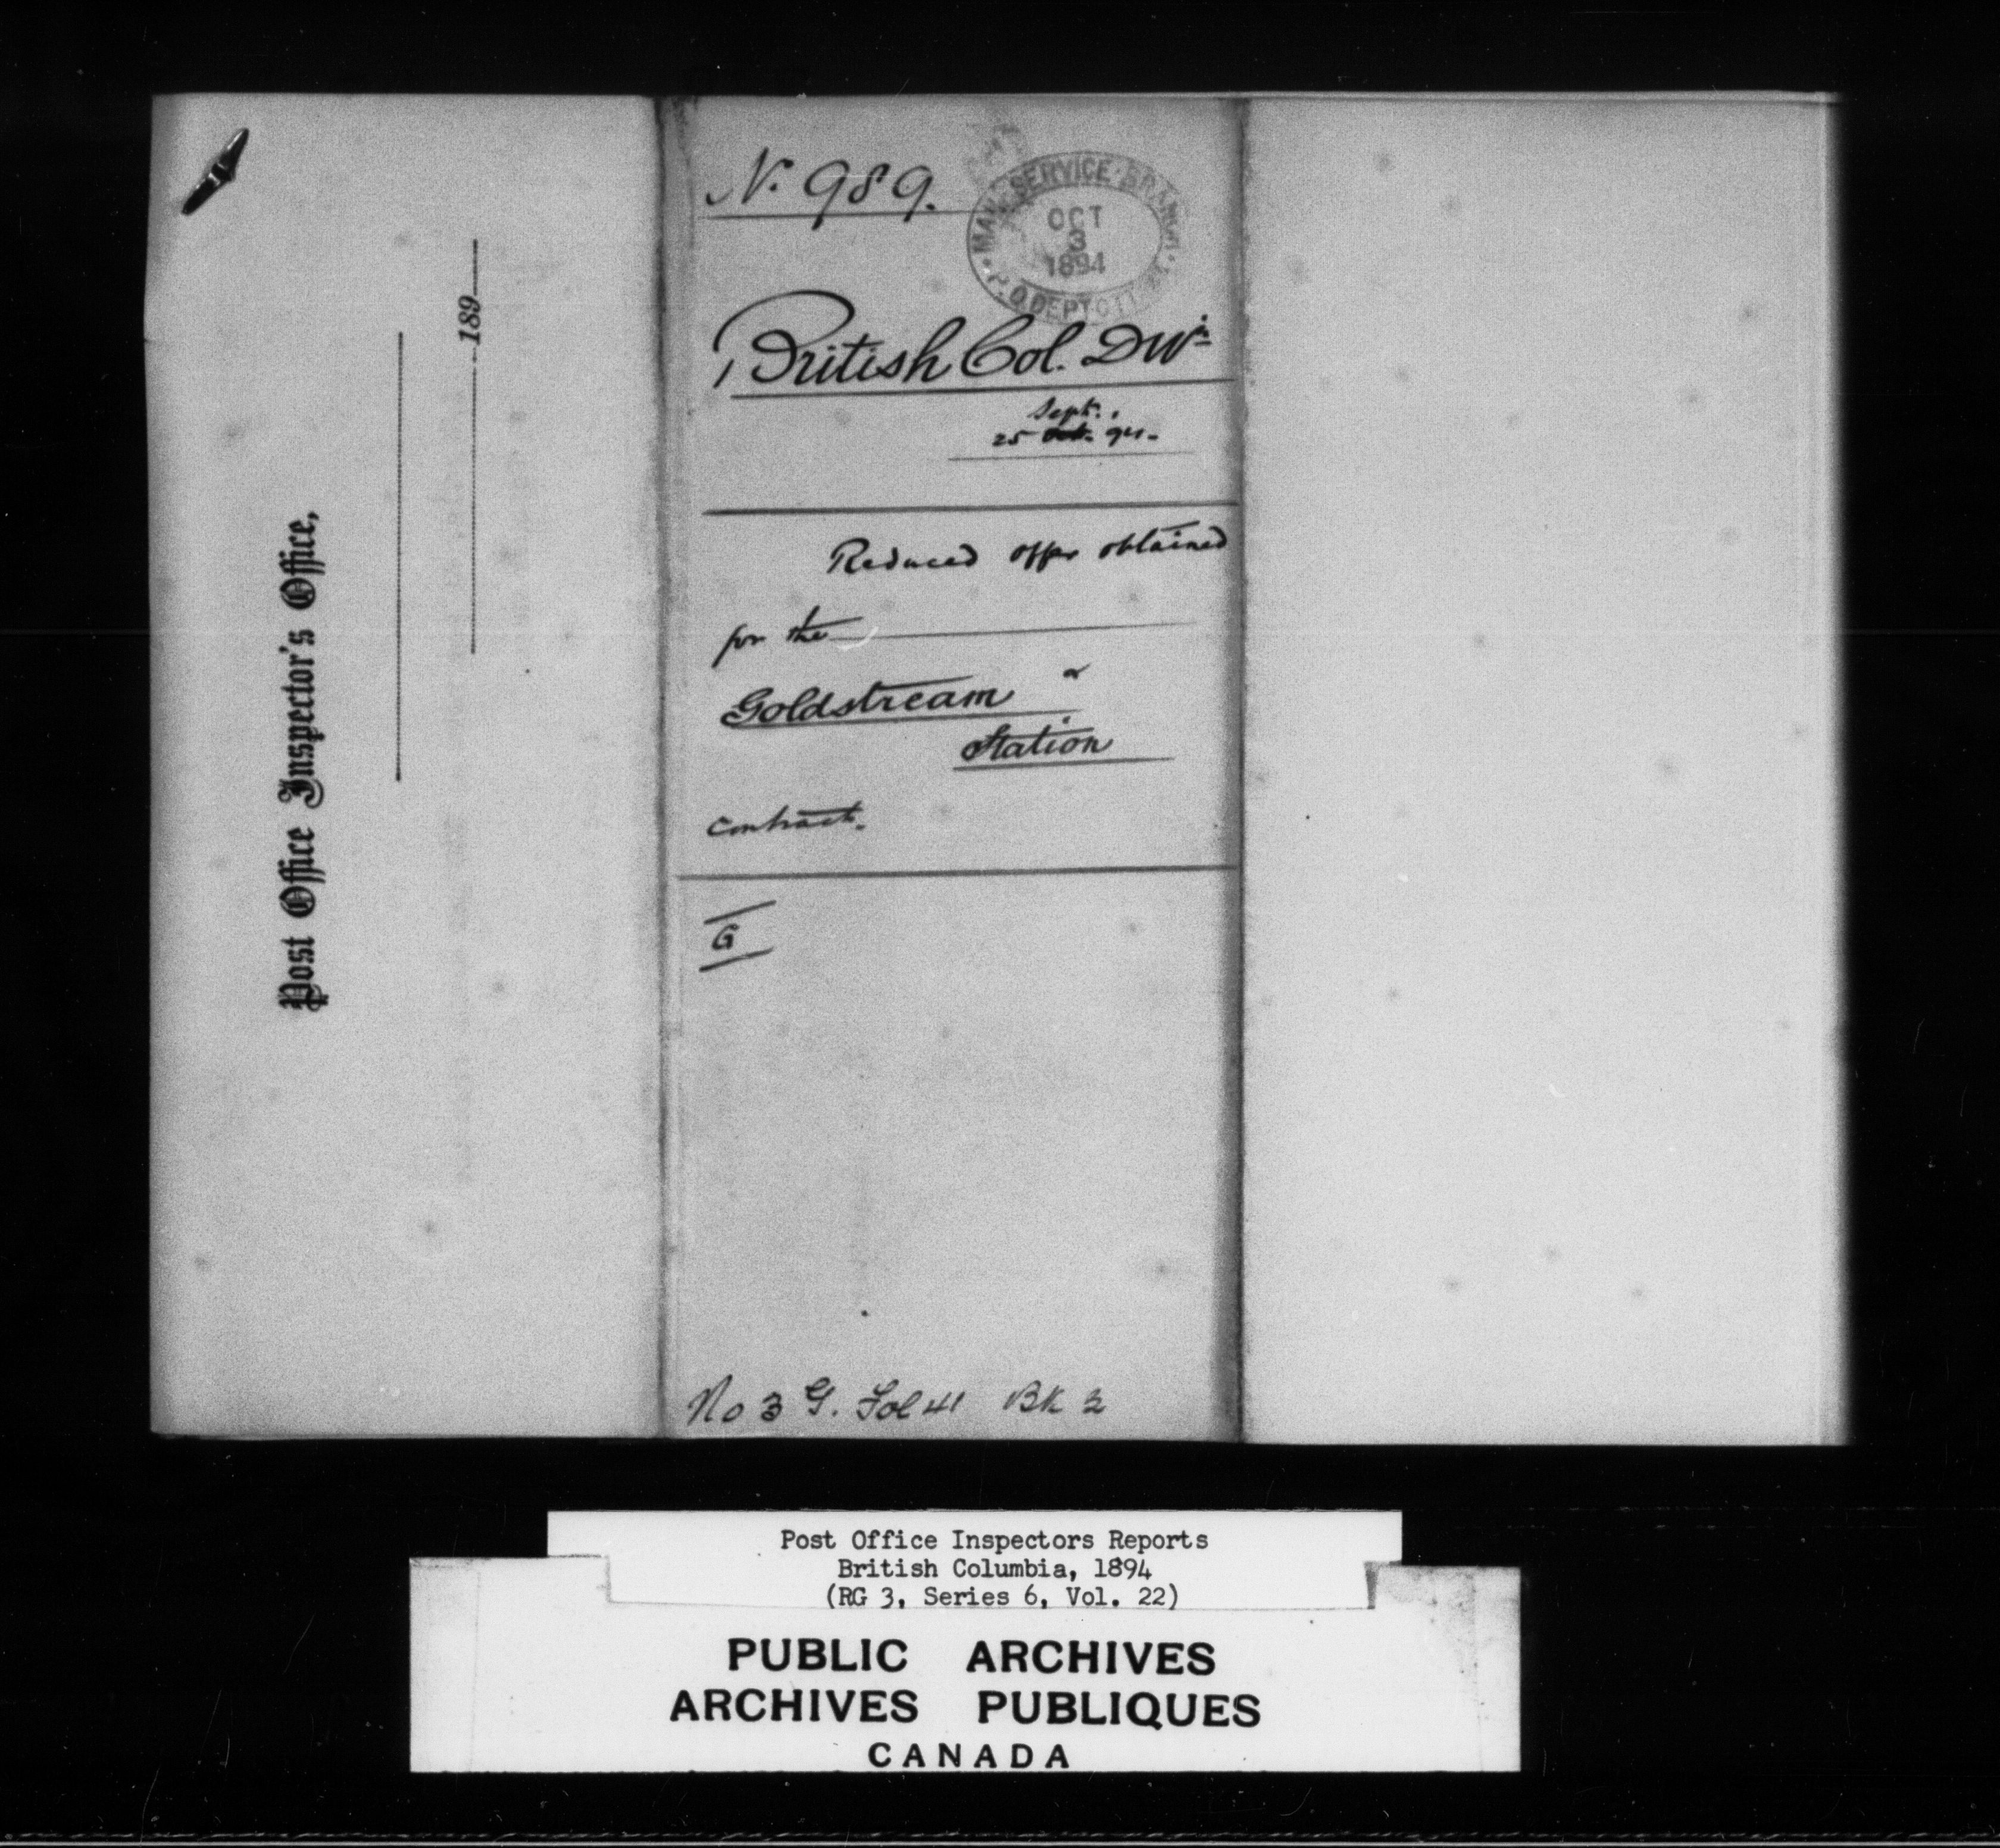 Post Office Inspector's Office,
189
N. 989.
MAIL SERVICE BRANCH
OCT
3
1894
P.O. DEPT OTT
British Col. Divn
Sept.
25 Oct. 94.
Reduced offer obtained
for the
Goldstream
Station
contract.
G
No 3 G. Fol 41 Bk 2
Post Office Inspectors Reports
British Columbia, 1894
(RG 3, Series 6, Vol. 22)
PUBLIC ARCHIVES
ARCHIVES PUBLIQUES
CANADA